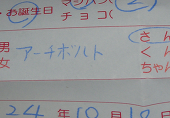 お誕生日 マジパン(
チョコ(
男 女 アーチボルト さん くん ちゃん
24年10月10